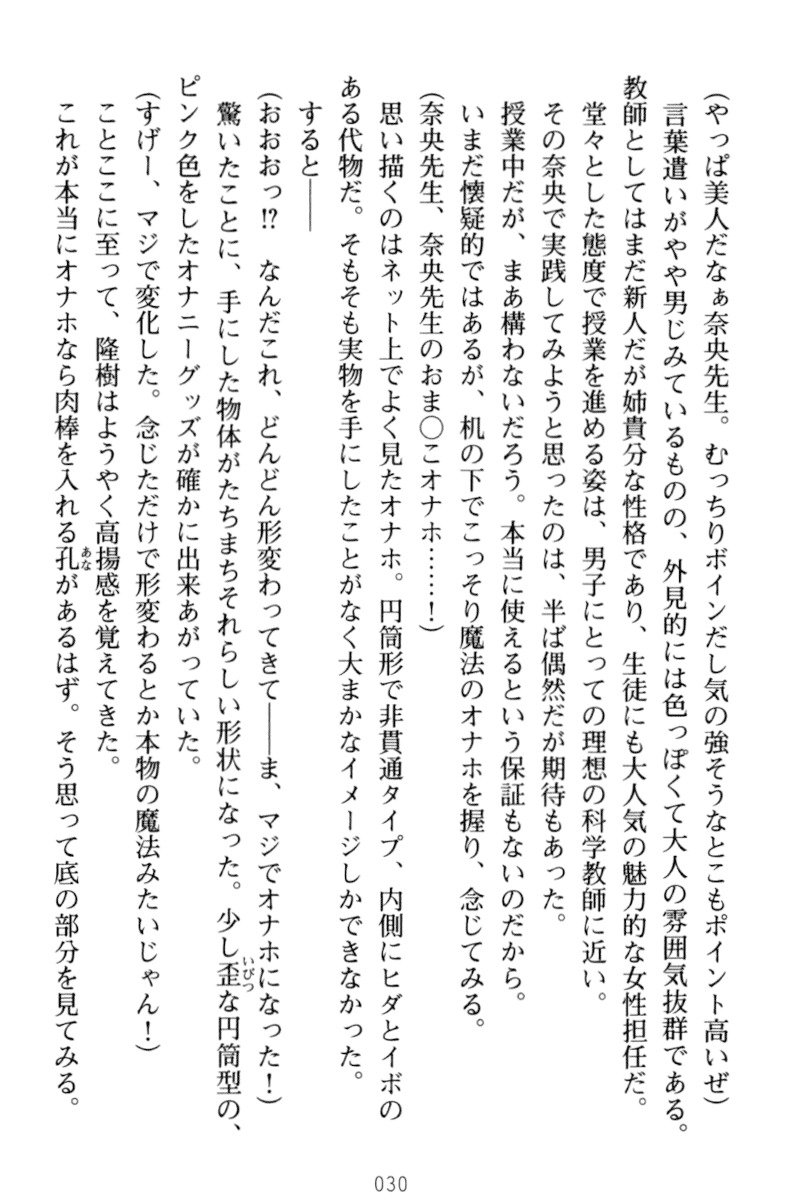 (やっぱ美人だなぁ奈央先生。むっちりボインだし気の強そうなとこもポイント高いぜ)
言葉遣いがやや男じみているものの、外見的には色っぽくて大人の雰囲気抜群である。
教師としてはまだ新人だが姉貴分な性格であり、生徒にも大人気の魅力的な女性担任だ。
堂々とした態度で授業を進める姿は、男子にとっての理想の科学教師に近い。
その奈央で実践してみようと思ったのは、半ば偶然だが期待もあった。
授業中だが、まあ構わないだろう。本当に使えるという保証もないのだから。
いまだ懐疑的ではあるが、机の下でこっそり魔法のオナホを握り、念じてみる。
(奈央先生、奈央先生のおま〇こオナホ……！)
思い描くのはネット上でよく見たオナホ。円筒形で非貫通タイプ、内側にヒダとイボの
ある代物だ。そもそも実物を手にしたことがなく大まかなイメージしかできなかった。
すると――
(おおおっ!?　なんだこれ、どんどん形変わってきて――ま、マジでオナホになった！)
驚いたことに、手にした物体がたちまちそれらしい形状になった。少し歪いびつな円筒型の、
ピンク色をしたオナニーグッズが確かに出来あがっていた。
(すげー、マジで変化した。念じただけで形変わるとか本物の魔法みたいじゃん！)
ことここに至って、隆樹はようやく高揚感を覚えてきた。
これが本当にオナホなら肉棒を入れる孔あながあるはず。そう思って底の部分を見てみる。
030